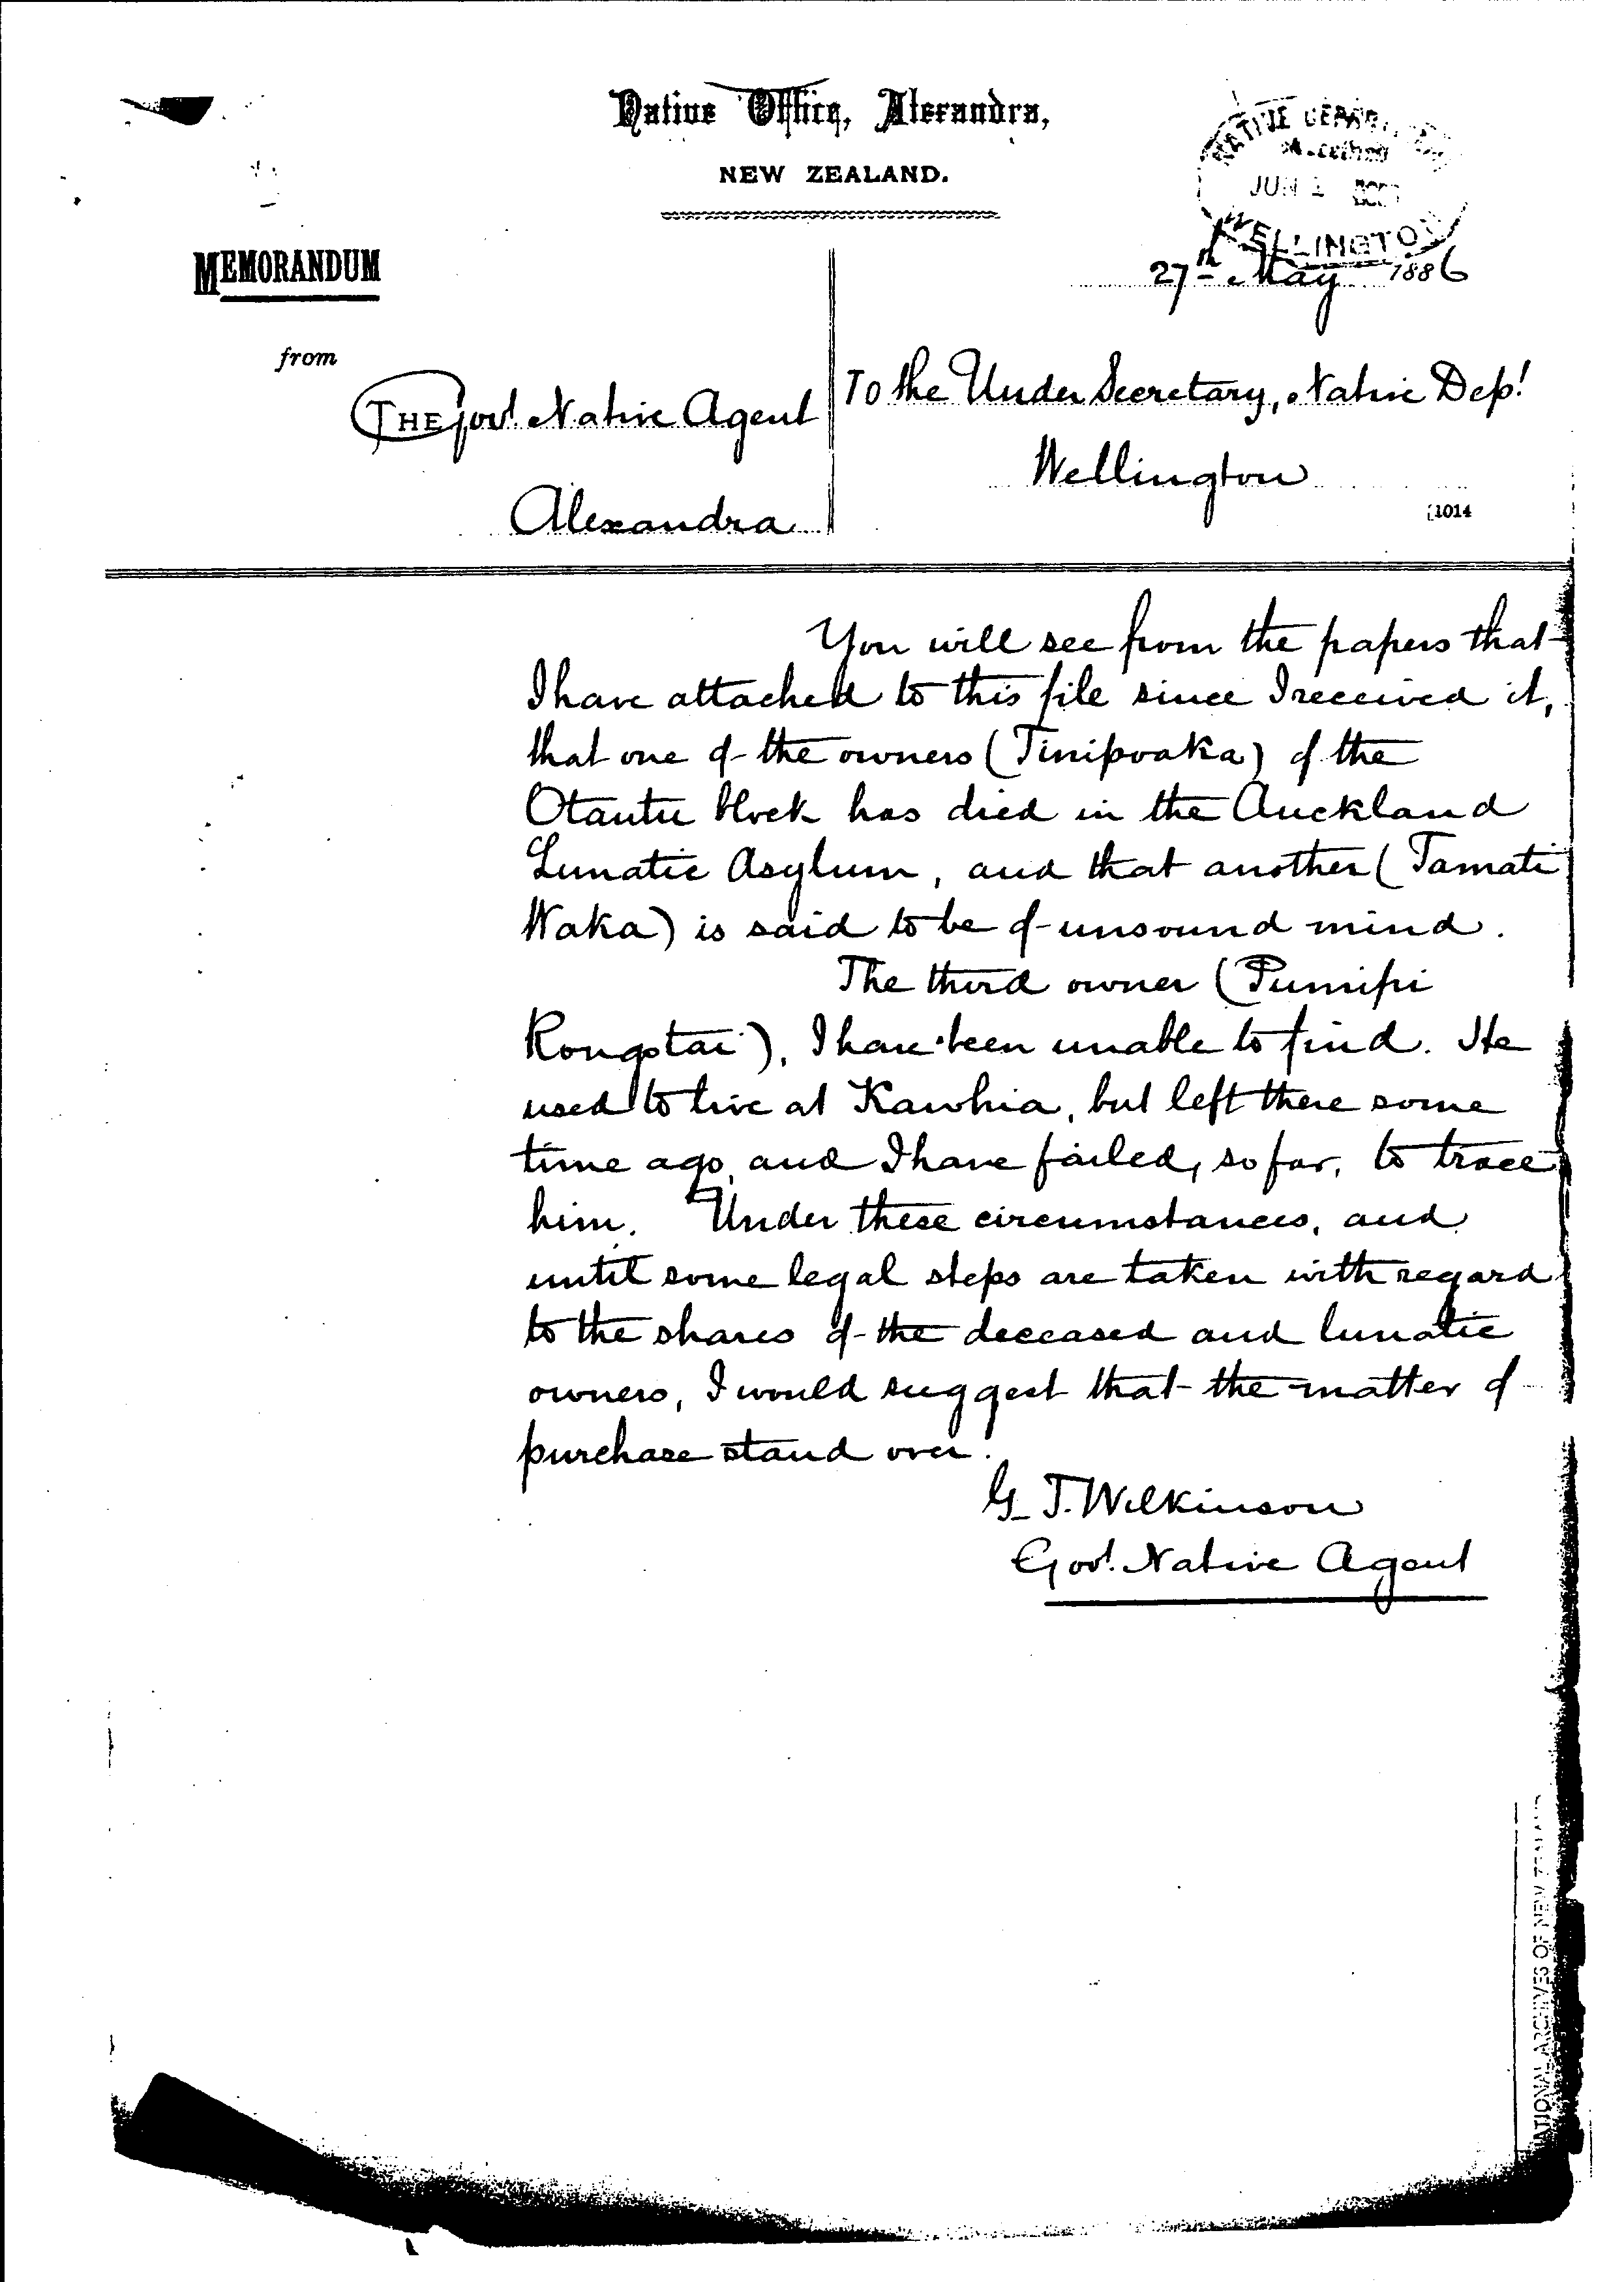 Native Office, Alexandra,
NEW ZEALAND.
NATIVE
JUN 1
WELLINGTON
27th May 1886
MEMORANDUM
from
THE Govt. Native Agent
Alexandra
To the Under Secretary, Native Dept.
Wellington
1014
You will see from the papers that
I have attached to this file since I received it,
that one of the owners (Tinipoaka) of the
Otautu block has died in the Auckland
Lunatic Asylum, and that another (Tamati
Waka) is said to be of unsound mind.
The third owner (Pumipi
Rongotai), I have been unable to find. He
used to live at Kawhia, but left there some
time ago, and I have failed, so far, to trace
him. Under these circumstances, and
until some legal steps are taken with regard
to the shares of the deceased and lunatic
owners, I would suggest that the matter of
purchase stand over.
G. T. Wilkinson
Govt. Native Agent
ARCHIVES OF NEW